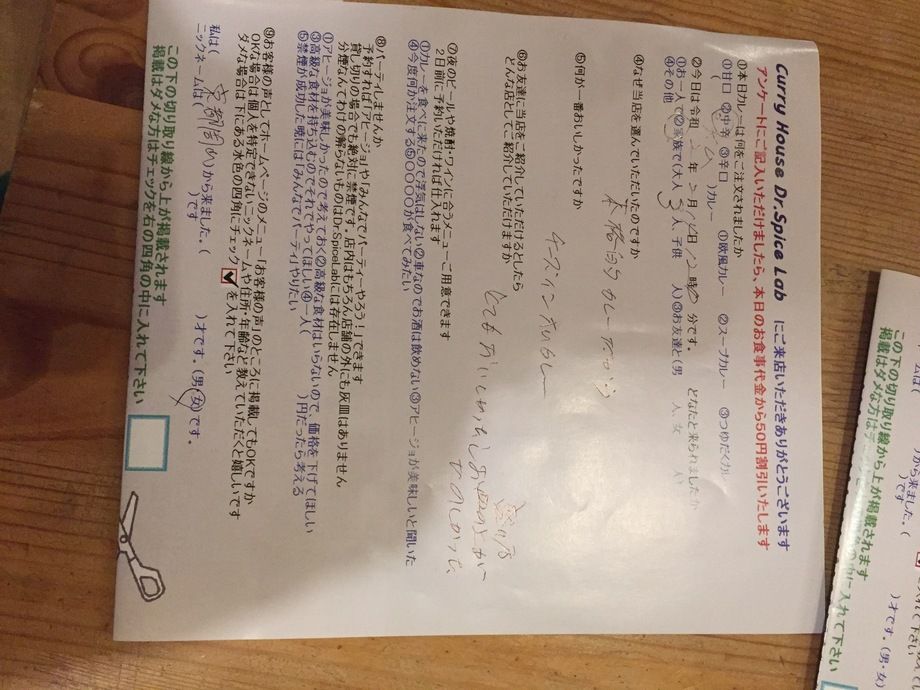 Curry House Dr.Spice Lab にご来店いただきありがとうございます
アンケートにご記入いただけましたら、本日のお食事代金から50円割引いたします
①本日カレーは何をご注文されましたか
①甘口 ②中辛 ③辛口 ①欧風カレー ②スープカレー ③つゆだくカレー
( )カレー
②今日は令和 2年 2月 日 12時 分です。 どなたと来られましたか
①お一人 ②家族で(大人 3人、子供 人)③お友達と(男 人、女 人)
④その他
④なぜ当店を選んでいただいたのですか
本格的 カレー
⑤何が一番おいしかったですか
チーズインカレー
⑥お友達に当店をご紹介していただけるとしたら
どんな店としてご紹介していただけますか
とても
⑦夜のビールや焼酎・ワインに合うメニューご用意できます
2日前に予約いただければ仕入れます
①カレーを食べに来たので浮気はしない②車なのでお酒は飲めない③アヒージョが美味しいと聞いた
④今度何か注文する⑤〇〇〇〇が食べてみたい
⑧パーティしませんか
予約すれば「アヒージョ」や「みんなでパーティーやろう！」できます
貸し切りの場合でも絶対に禁煙です。店内はもちろん店舗の外にも灰皿はありません
分煙なんてわけの解らないものはDr.SpiceLabには存在しません
①アヒージョが美味しかったので考えておく②高級な食材はいらないので、価格を下げてほしい
③高級な食材を持ち込むのでそれでやってほしい④一人( )円だったら考える
⑤禁煙が成功した晩には「みんなでパーティ」やりたい
⑨お客様の声としてホームページのメニュー「お客様の声」のところに掲載してもOKですか
OKな場合は個人を特定できないニックネームや住所・年齢など教えていただくと嬉しいです
ダメな場合は下にある水色の四角にチェックを入れて下さい
私は( )から来ました。( )才です。(男・女)です。
ニックネームは( )です
この下の切り取り線から上が掲載されます
掲載はダメな方はチェックを右の四角の中に入れて下さい
から来ました。(
)です
)才です。(男・女)
この下の切り取り線から上が掲載されます
掲載はダメな方は
の中に入れて下さい